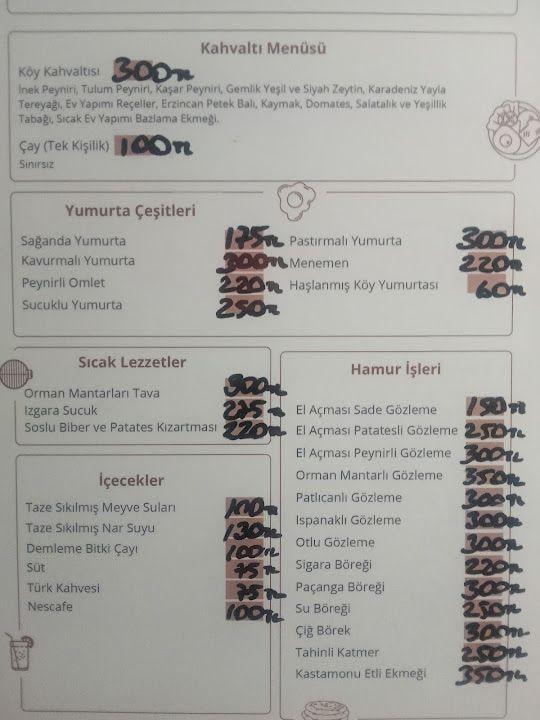 Kahvaltı Menüsü
Köy Kahvaltısı 300TL
İnek Peyniri, Tulum Peyniri, Kaşar Peyniri, Gemlik Yeşil ve Siyah Zeytin, Karadeniz Yayla
Tereyağı, Ev Yapımı Reçeller, Erzincan Petek Balı, Kaymak, Domates, Salatalık ve Yeşillik
Tabağı, Sıcak Ev Yapımı Bazlama Ekmeği.
Çay (Tek Kişilik) 100TL
Sınırsız
Yumurta Çeşitleri
Sağanda Yumurta 175TL
Kavurmalı Yumurta 300TL
Peynirli Omlet 220TL
Sucuklu Yumurta 250TL
Pastırmalı Yumurta 300TL
Menemen 220TL
Haşlanmış Köy Yumurtası 60TL
Sıcak Lezzetler
Orman Mantarları Tava 300TL
Izgara Sucuk 275TL
Soslu Biber ve Patates Kızartması 220TL
İçecekler
Taze Sıkılmış Meyve Suları 100TL
Taze Sıkılmış Nar Suyu 130TL
Demleme Bitki Çayı 100TL
Süt 75TL
Türk Kahvesi 75TL
Nescafe 100TL
Hamur İşleri
El Açması Sade Gözleme
El Açması Patatesli Gözleme 250TL
El Açması Peynirli Gözleme 300TL
Orman Mantarlı Gözleme 350TL
Patlıcanlı Gözleme 300TL
Ispanaklı Gözleme 300TL
Otlu Gözleme 300TL
Sigara Böreği 220TL
Paçanga Böreği 300TL
Su Böreği 250TL
Çiğ Börek 300TL
Tahinli Katmer 250TL
Kastamonu Etli Ekmeği 350TL